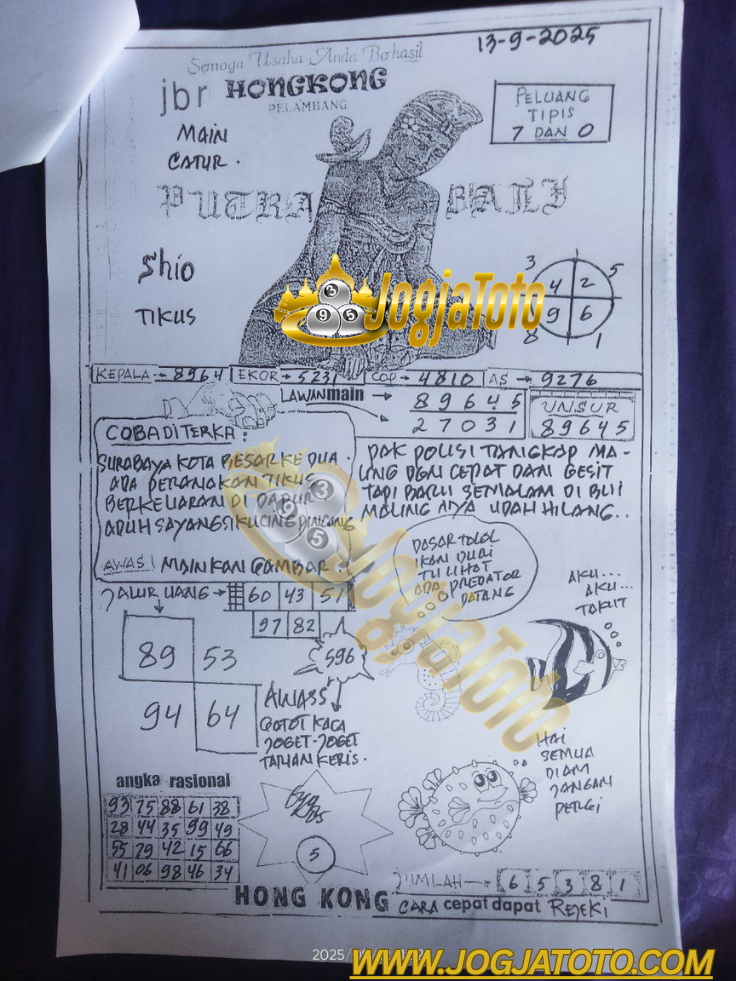 13-9-2025
Semoga Usaha Anda Berhasil
jbr HONGKONG
PELAMBANG
PELUANG
TIPIS
7 DAN 0
MAIN
CATUR.
PUTRA BALI
Shio
TIKUS
3 1 5
4 2
9 6
8 1
JogjaToto
KEPALA → 8964 EKOR → 5231 COP → 4810 AS → 9276
LAWAN main → 89645
27031
UNSUR
89645
COBA DITERKA :
SURABAYA KOTA BESAR KE DUA.
ADA PERANAKAN TIKUS
BERKELIARAN DI DAPUR
ADUH SAYANG SI KUCING PINCANG
AWAS! MAINKAN GAMBAR.
PAK POLISI TANGKAP MA-
LING DGN CEPAT DAN GESIT
TAPI BARU SEMALAM DI BUI
MALING NYA UDAH HILANG..
DASAR TOLOL
IKAN DURI
TU LIHAT
ADA PREDATOR
DATANG
AKU...
AKU...
TAKUT
JALUR UANG → 60 43 51
97 82
89 53
94 64
596
AWASS
GOTOT KACA
JOGET-JOGET
TARIAN KERIS.
JogjaToto
HAI
SEMUA
DIAM
JANGAN
PERGI
angka rasional
93 75 88 61 38
28 44 35 99 49
55 79 42 15 66
41 06 98 46 34
5
JUMLAH → 6 5 3 8 1
HONG KONG CARA cepat dapat REJEKI
2025/
WWW.JOGJATOTO.COM